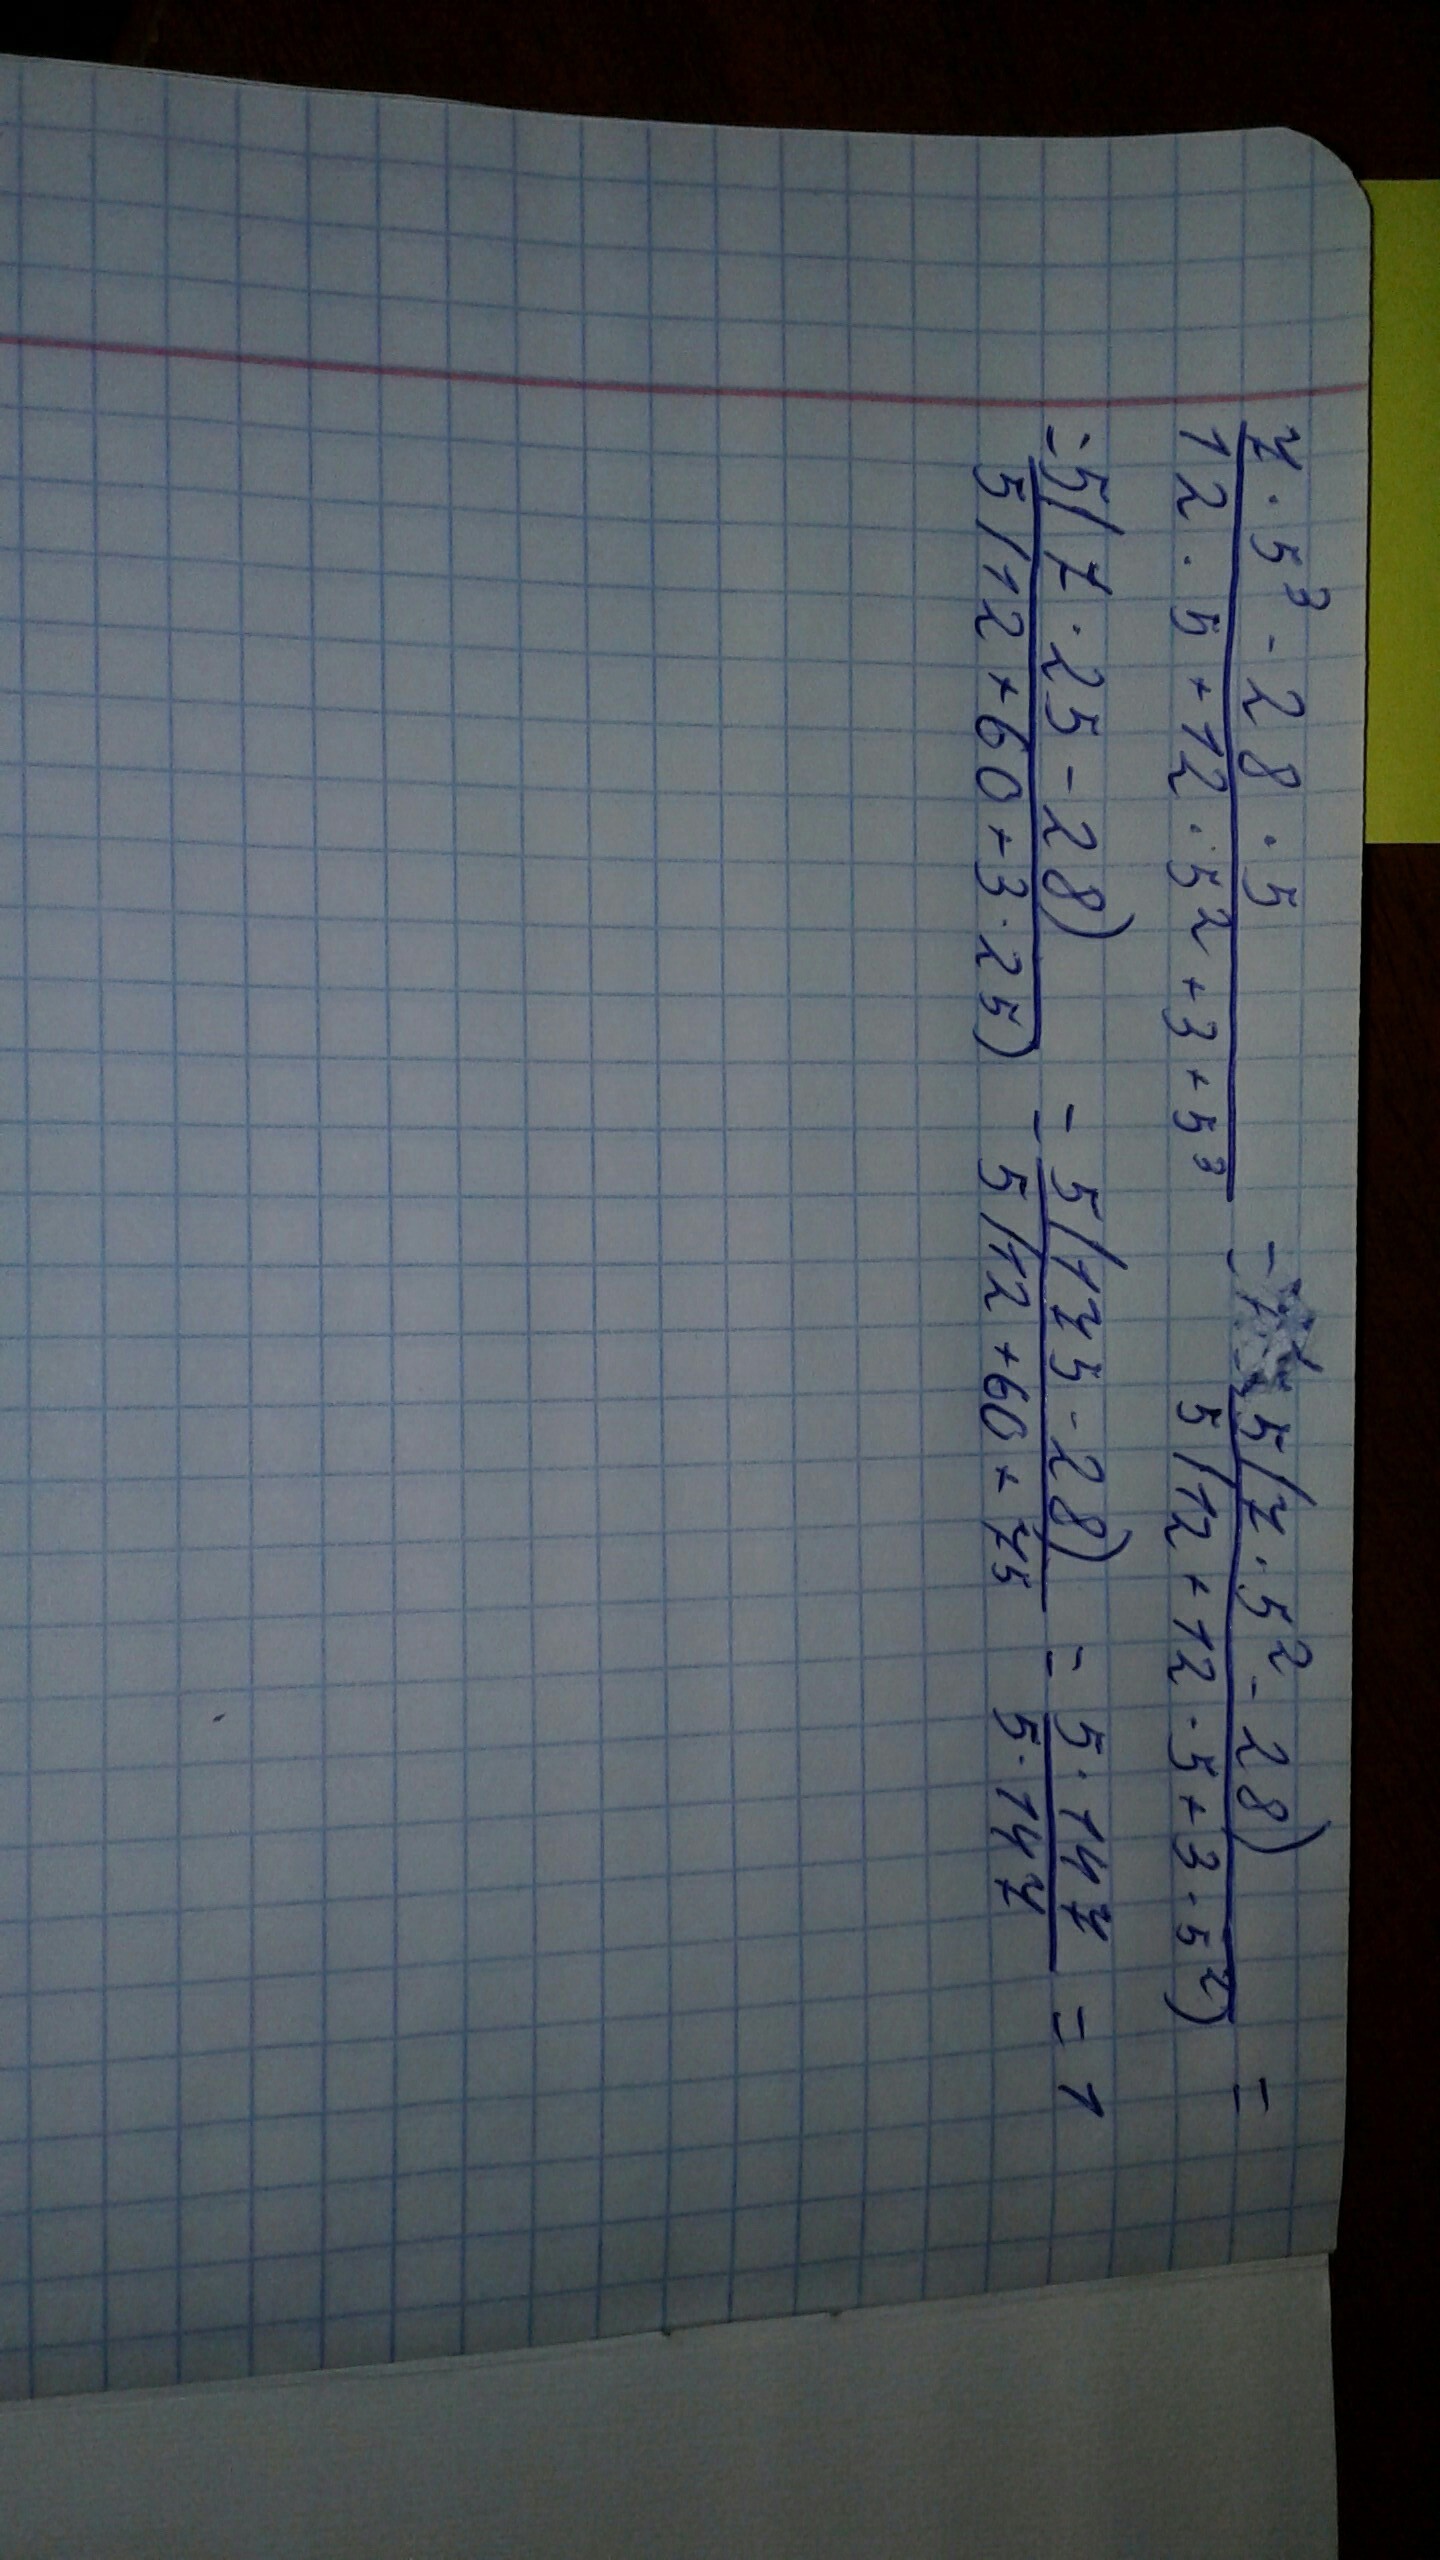 7 · 5³ - 28 · 5 / 12 · 5 + 12 · 5² + 3 + 5³ = 5(7 · 5² - 28) / 5(12 + 12 · 5 + 3 · 5²) =
= 5(7 · 25 - 28) / 5(12 + 60 + 3 · 25) = 5(175 - 28) / 5(12 + 60 + 75 = 5 · 147 / 5 · 147 = 1